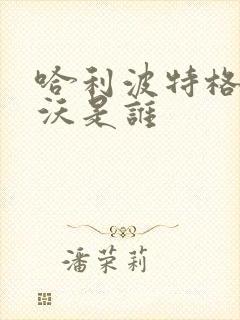 哈利波特格
沃是誰
潘荣莉